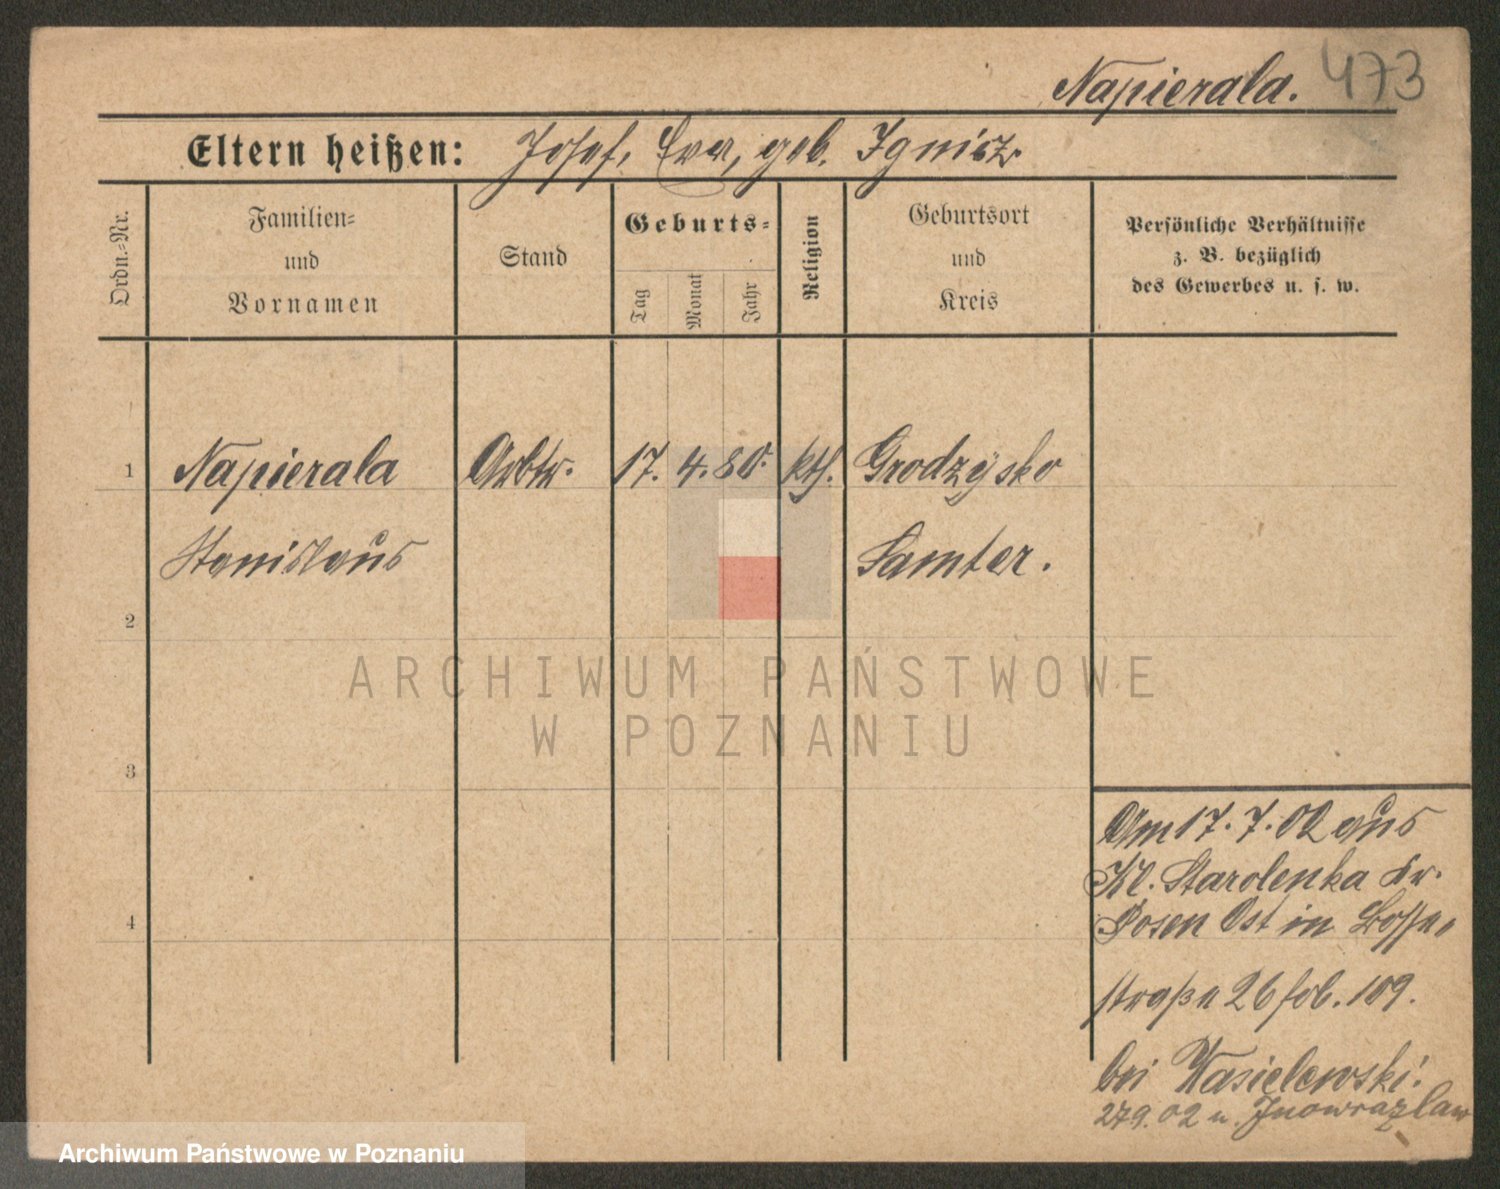 Napierala. 473
Eltern heißen: Josef, Eva, geb. Ignisz
Ordn.-Nr.
Familien-
und
Vornamen
Stand
Geburts-
Tag
Monat
Jahr
Religion
Geburtsort
und
Kreis
Persönliche Verhältnisse
z. B. bezüglich
des Gewerbes u. s. w.
1 Napierala Arbtr. 17. 4. 80. kth. Grodzysko
Stanislaus Samter.
2
ARCHIWUM PAŃSTWOWE
W POZNANIU
3
4
Am 17. 7. 02 aus
Kl. Starolenka Kr.
Posen Ost in
straße 26 fob. 109.
bei Wasielewski.
279.02 n. Inowrazlaw
Archiwum Państwowe w Poznaniu